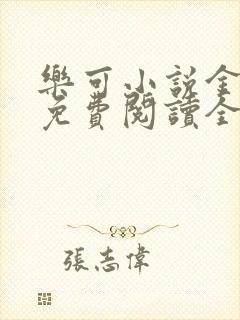 樂可小說全
免費閱讀全
張志偉